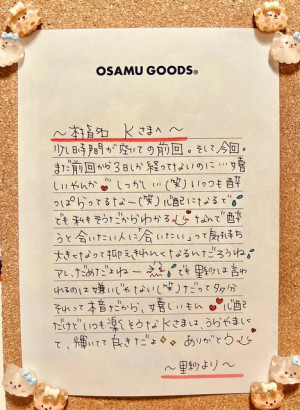 OSAMU GOODS®
〜本指名 Kさまへ〜
少し時間が空いての前回。そして今回。
まだ前回から3日しか経ってないのに…嬉
しいやんか しっかし…(笑)いっつも酔
っぱらってるなー(笑)心配になるで
でも私もそうだからわかる なんで酔
うと会いたい人に「会いたい」って気持ち
大きくなって抑えきれなくなるんだろうね
アレ、だめだよねー でも里紗は言わ
れるのは嫌いじゃない(笑)だって多分
それって本音だから、嬉しいもん 心配
だけどいつも楽しそうなKさまは、うらやましく
て、輝いてて良きだよ ありがとう
〜里紗より〜